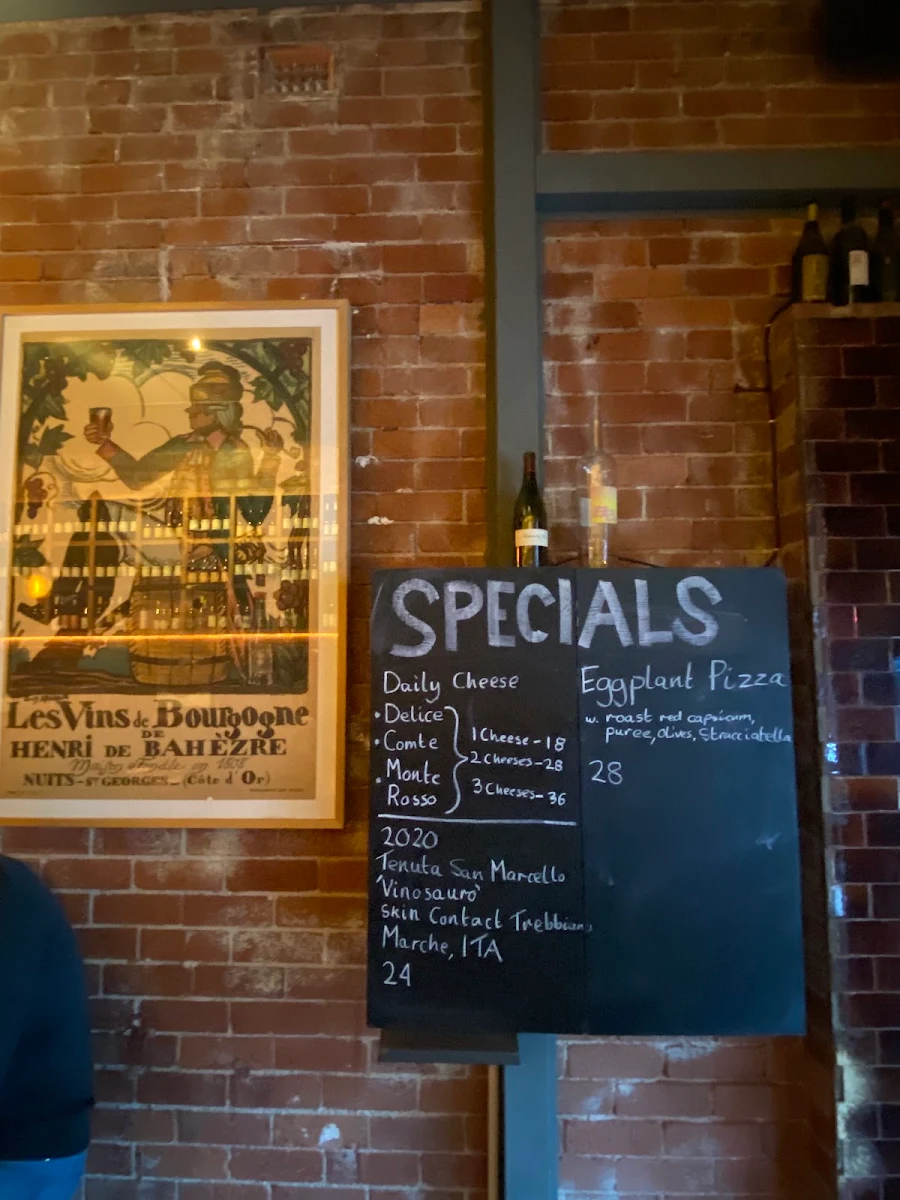 Les Vins de Bourgogne
DE
HENRI DE BAHÈZRE
NUITS-ST GEORGES_(Côte d'Or)
SPECIALS
Daily Cheese
• Delice
• Comte
• Monte
Rosso
1 Cheese - 18
2 Cheeses - 28
3 Cheeses - 36
2020
Tenuta San Marcello
'Vinosauro'
Skin Contact Trebbiano
Marche, ITA
24
Eggplant Pizza
w. roast red capsicum,
puree, olives, Stracciatella
28